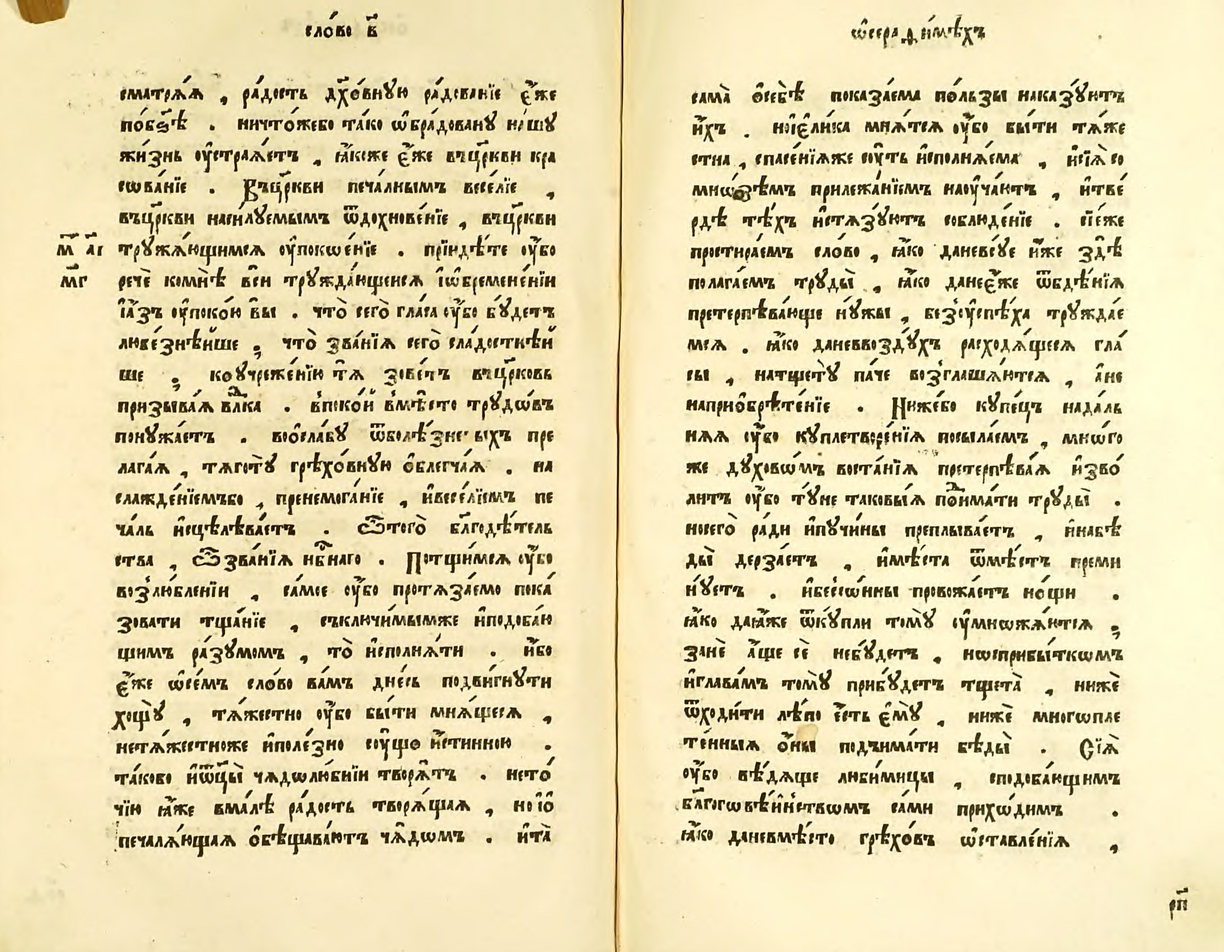 сло́во в҃
сматрѧ́ѧ , ра́дость дх҃о́вную ра́дованїе є҆́же
побз҃ѣ . ничто́жебо та́ко ѡ҆бра́довану на́шу
жи́знь ѹ҆страѧ́етъ , ꙗ҆́коже є҆́же въцр҃кви кра
сова́нїе . Въцр҃кви печа́лнымъ весе́лїе ,
въцр҃кви наси́луемымъ ѿдохнове́нїе , въцр҃кви
тружа́ющимсѧ ѹ҆покое́нїе . прїидѣ́те ѹ҆́бо
м҃ а҃і
м҃г
речѐ комнѣ̀ всѝ тружда́ющеисѧ и҆ѡ҆бремене́нїи
и҆а҆́зъ ѹ҆поко́ю вы̀ . что̀ сего̀ гла́са ѹ҆́бо бу́детъ
любе́знѣйше ; что̀ зва́нїѧ сего̀ сла́достнѣй
ше ; коучреже́нїю тѧ̀ зове́тъ въцр҃ковь
призыва́ѧ влⷣка . впоко́й вмѣ́сто трудо́въ
пону́жаетъ . восла́бу ѿболѣ́зненыхъ пре
лага́ѧ , тѧготу̀ грѣхо́вную ѡ҆блегча́ѧ . на
слажде́нїемъбо , пренемога́нїе , и҆весе́лїемъ пе
ча́ль и҆сцѣлѣва́етъ . Ѿтого̀ бл҃годѣ́тель
ства , Ѿзва́нїѧ нбⷭ҇наго . Потщи́мсѧ ѹ҆́бо
возлю́бленїи , са́мое ѹ҆́бо протѧза́емо пока
зова́ти тща́нїе , съключи́мымже и҆подоба́ю
щимъ ра́зумомъ , то̀ и҆сполнѧ́ти . и҆́бо
є҆́же ѡ҆се́мъ сло́во ва́мъ дне́сь подви́гнути
хощу̀ , тѧ́жестно ѹ҆́бо бы́ти мнѧ́щеесѧ ,
нетѧ́жестноже и҆поле́зно су́що и҆́стинною .
таково̀ и҆ѻ҆тцы̀ чадолю́бнїи творѧ́тъ . нето́
чїю ꙗ҆́же вма́лѣ ра́дость творѧ́щаѧ , но и҆
печалѧ́ющаѧ ѡ҆бѣщава́ютъ ча́домъ . и҆та́
ѡ҆серафи́мѣхъ
сама̀ ѡ҆себѣ̀ показа́ема по́льзы наказу́ютъ
и҆́хъ . и҆є҆ли́ка мнѧ́тсѧ ѹ҆́бо бы́ти тѧ́же
стна , спасе́нїѧже су́ть и҆сполнѧ́ема , и҆сїѧ̀ со
мно́зѣмъ прилежа́нїемъ науча́ютъ , и҆тве́
рдѣ тѣ́хъ и҆стѧзу́ютъ соблюде́нїе . сїе́же
простира́емъ сло́во , ꙗ҆́ко даневсуе и҆́же здѣ̀
полага́емъ труды̀ , ꙗ҆́ко данеє҆́же ѿбдѣ́нїѧ
претерпѣва́юще ну́жы , безуспѣ́ха тружда́е
мсѧ . ꙗ҆́ко даневвозду́хъ расходѧ́щесѧ гла́
сы , натщету̀ па́че возглаша́ютсѧ , а҆́не
наприѡбрѣ́тенїе . Ни́жебо купе́цъ нада́ль
нѧѧ ѹ҆́бо куплетворе́нїѧ посыла́емъ , мно́го
же духово́мъ воста́нїѧ претерпѣва́ѧ и҆зво́
литъ ѹ҆́бо ту́не таковы́ѧ пои҆ма́ти труды̀ .
носего̀ ра́ди и҆пучи́ны преплыва́етъ , и҆набѣ
ды̀ дерза́етъ , и҆мѣ́ста ѿмѣ́стъ преми
ну́етъ . и҆бессо́нны провожа́етъ но́щи .
ꙗ҆́ко даꙗ҆́же ѿку́пли тому̀ ѹ҆мно́жатсѧ ;
занѐ а҆́ще сѐ небу́детъ , носприбы́ткомъ
и҆глава́мъ тому̀ прибу́детъ тщета̀ , нижѐ
ѿходи́ти лѣ́по є҆́сть є҆му̀ , нижѐ многопле
те́нныѧ ѻ҆́ны под̾има́ти бѣды̀ . Сїѧ̀
ѹ҆́бо вѣ́дѧще люби́мицы , сподоба́ющимъ
бл҃гоговѣ́инствомъ са́ми прихо́димъ .
ꙗ҆́ко даневмѣ́сто грѣхо́въ ѡ҆ставле́нїѧ ,
рп҃